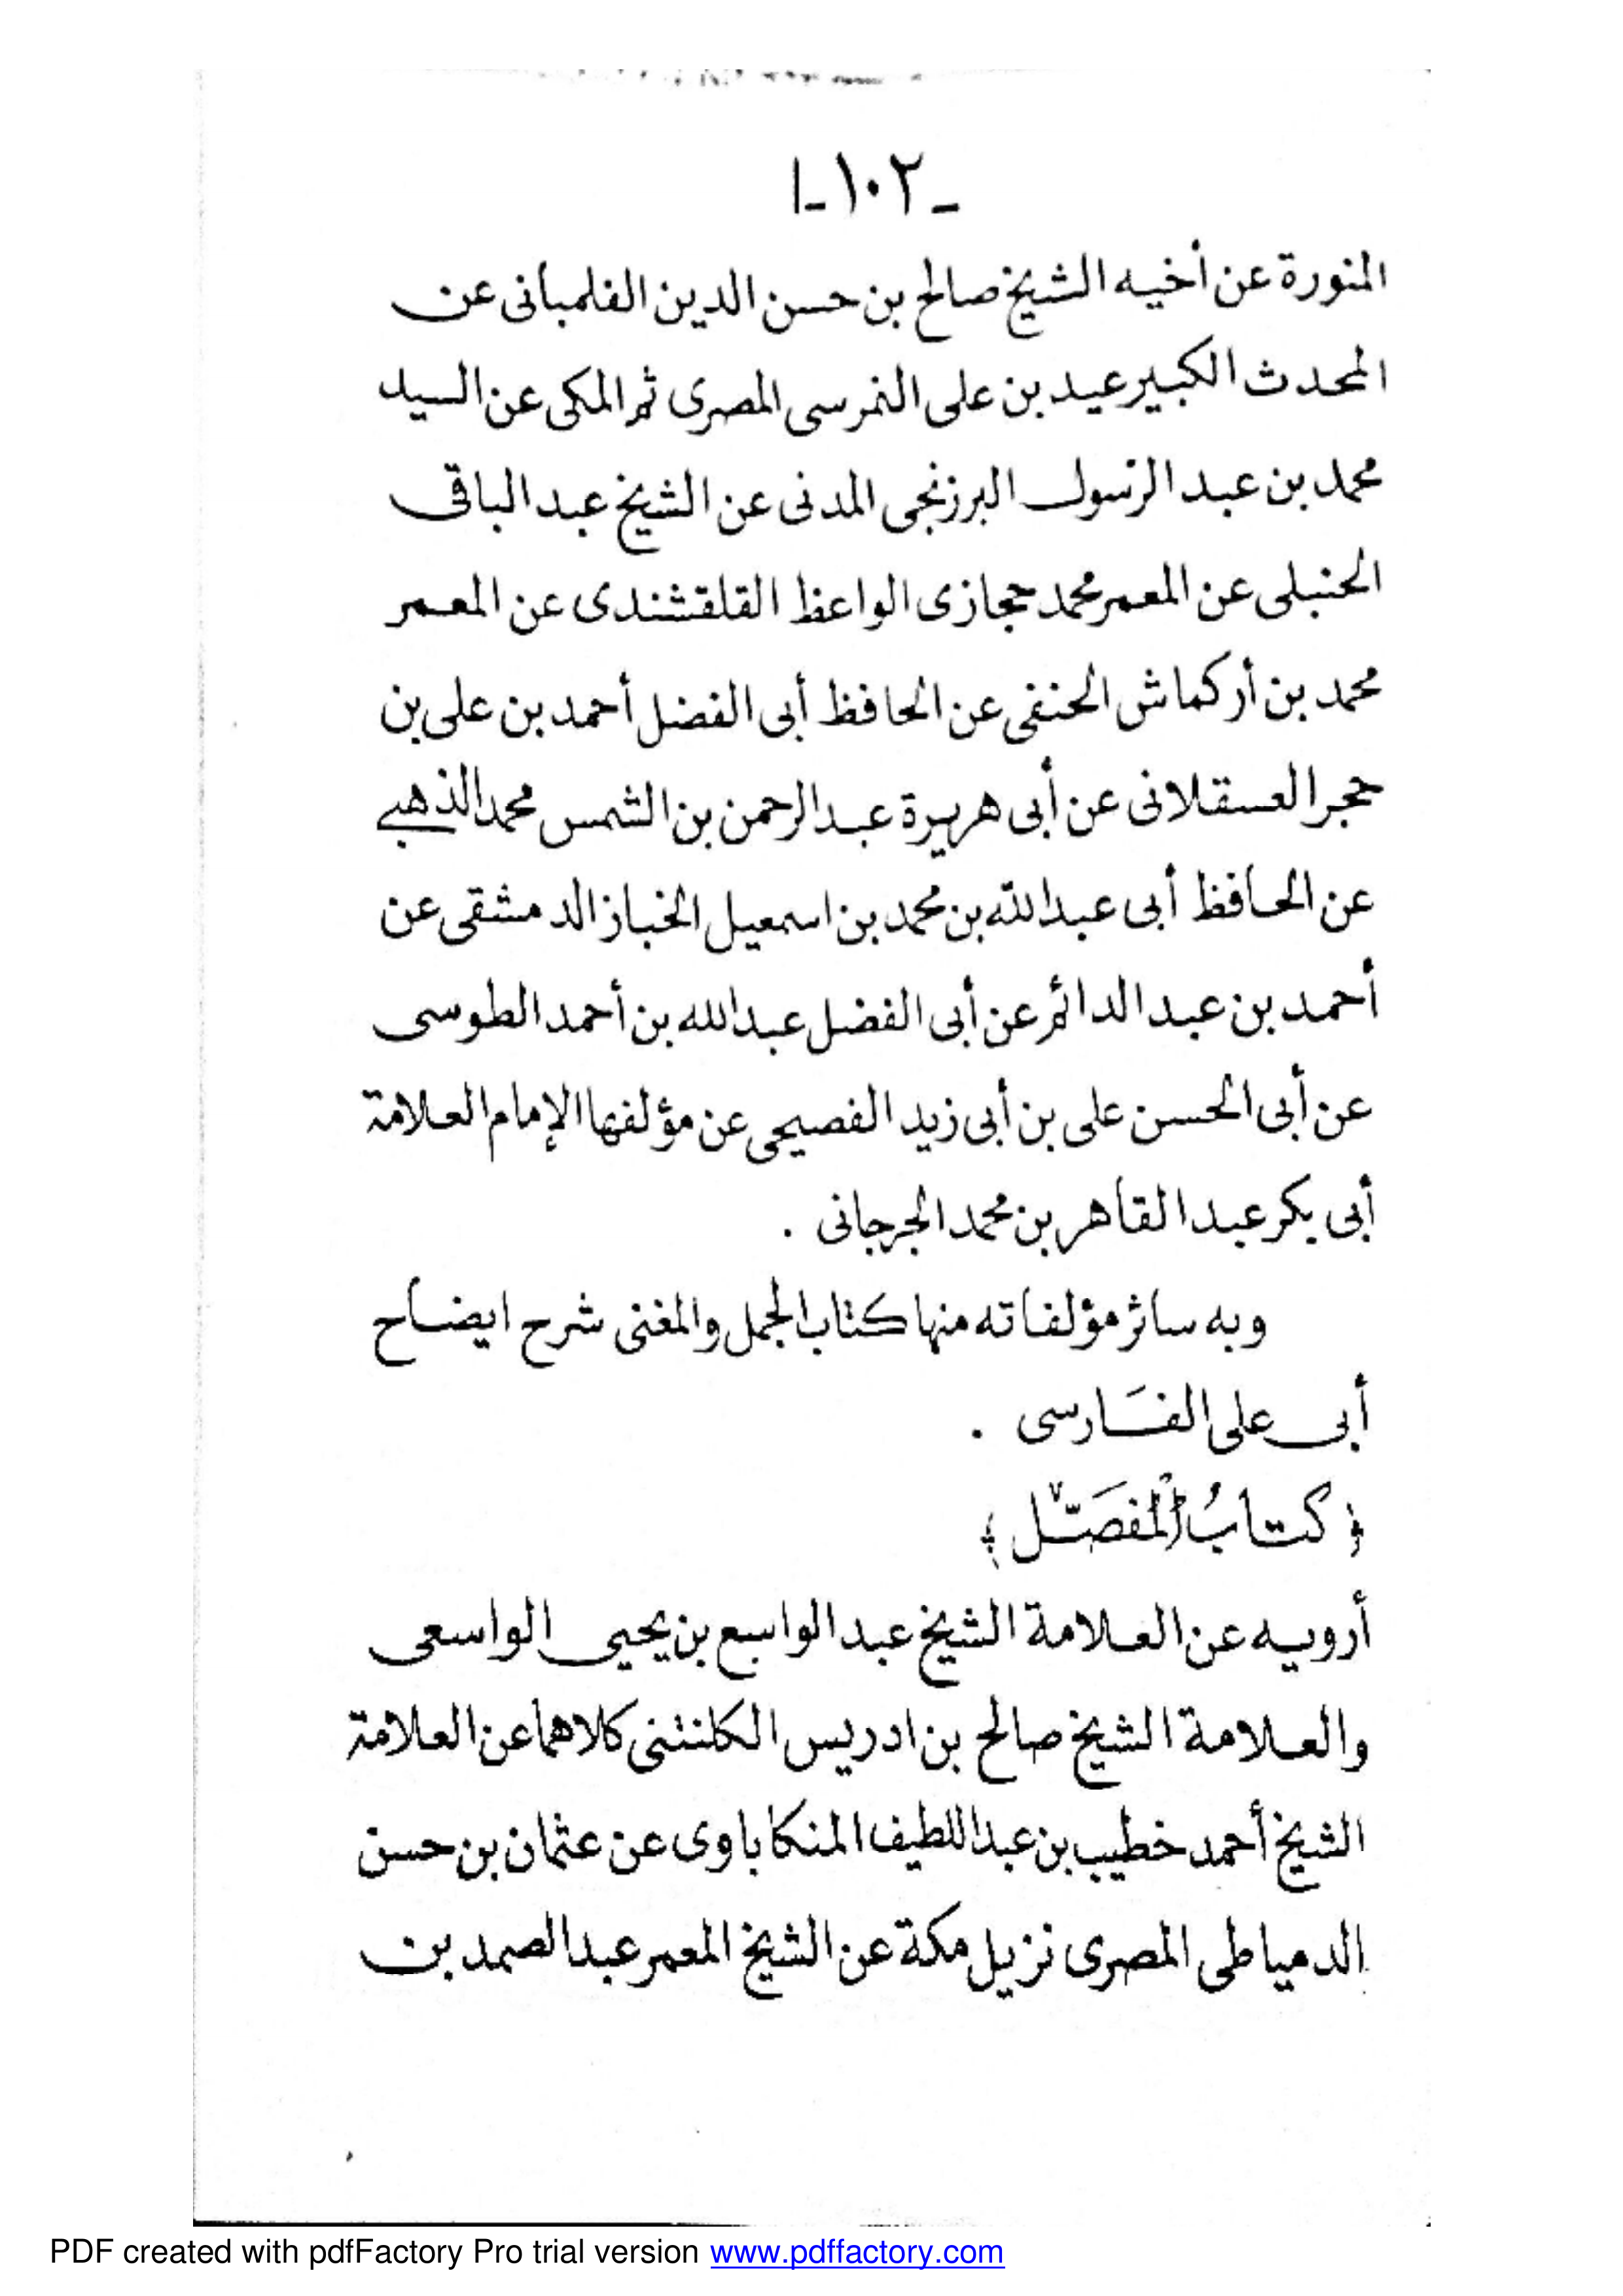 ـ ١٠٢ ـا
المنورة عن أخيه الشيخ صالح بن حسن الدين الفلمبانى عن
المحدث الكبير عيد بن على النمرسى المصرى ثم المكى عن السيد
محمد بن عبد الرسول البرزنجى المدنى عن الشيخ عبد الباقى
الحنبلى عن المعمر محمد حجازى الواعظ القلقشندى عن المعمر
محمد بن أركماش الحنفى عن الحافظ أبى الفضل أحمد بن على بن
حجر العسقلانى عن أبى هريرة عبد الرحمن بن الشمس محمد الذهبى
عن الحافظ أبى عبد الله بن محمد بن اسمعيل الخباز الدمشقى عن
أحمد بن عبد الدائم عن أبى الفضل عبد الله بن أحمد الطوسى
عن أبى الحسن على بن أبى زيد الفصيحى عن مؤلفها الإمام العلامة
أبى بكر عبد القاهر بن محمد الجرجانى .
وبه سائر مؤلفاته منها كتاب الجمل والمغنى شرح ايضاح
أبى على الفَارسى .
﴿ كتابُ المْفصَّل ﴾
أرويه عن العلامة الشيخ عبد الواسع بن يحيى الواسعى
والعلامة الشيخ صالح بن ادريس الكلنتنى كلاهما عن العلامة
الشيخ أحمد خطيب بن عبد اللطيف المنكاباوى عن عثمان بن حسن
الدمياطى المصرى نزيل مكة عن الشيخ المعمر عبد الصمد بن
PDF created with pdfFactory Pro trial version www.pdffactory.com